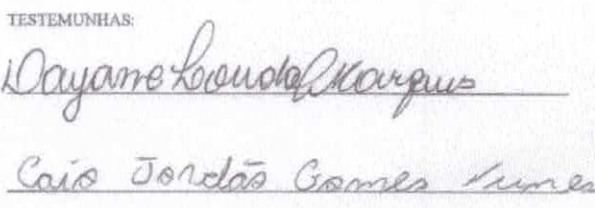 TESTEMUNHAS:
Dayane Marques
Caio Jordão Gomes Nunes